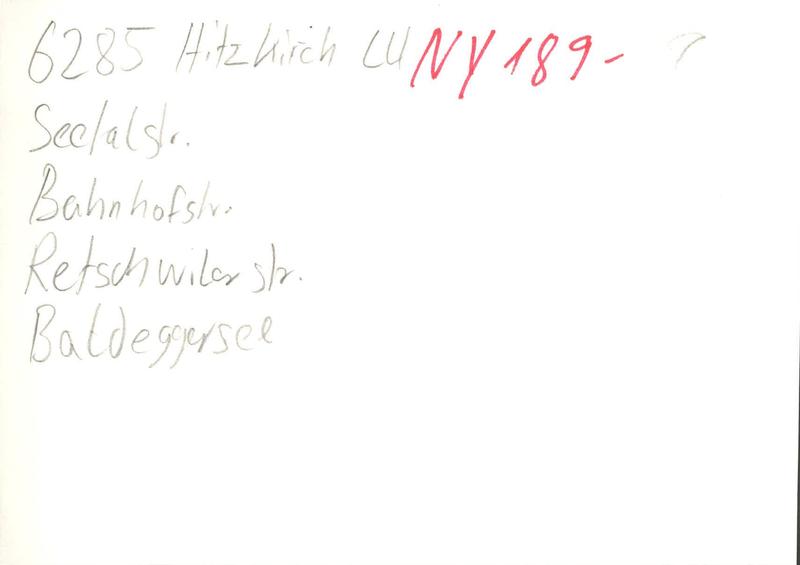 6285 Hitzkirch LU NY 189-
Seetalstr.
Bahnhofstr.
Retschwilerstr.
Baldeggersee